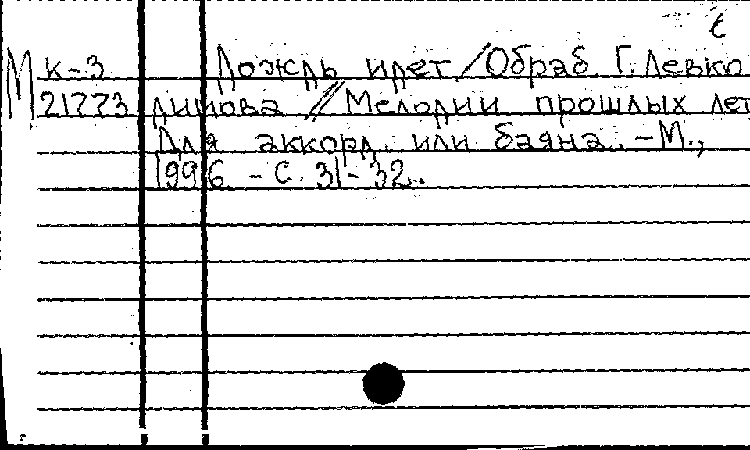 М к-3 Дождь идет / Обраб. Г. Левко
21773 динова // Мелодии прошлых лет
Для аккорд. или баяна. - М.,
1996. - С. 31-32.